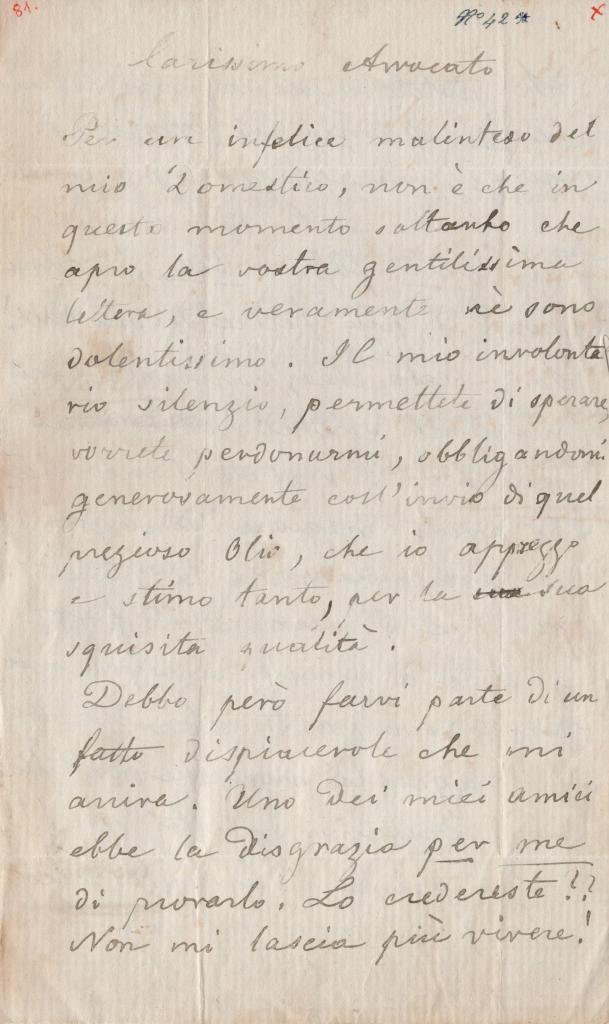 81.
No 42
x
Carissimo Avvocato
Per un infelice malinteso del
mio Domestico, non è che in
questo momento soltanto che
apro la vostra gentilissima
lettera, e veramente nè sono
dolentissimo. Il mio involonta
rio silenzio, permettete di sperare,
vorrete perdonarmi, obbligandomi
generosamente coll'invio di quel
prezioso Olio, che io apprezzo
e stimo tanto, per la sua
squisita qualità.
Debbo però farvi parte di un
fatto dispiacevole che mi
arriva. Uno dei miei amici
ebbe la disgrazia per me
di provarlo. Lo credereste!?
Non mi lascia più vivere!